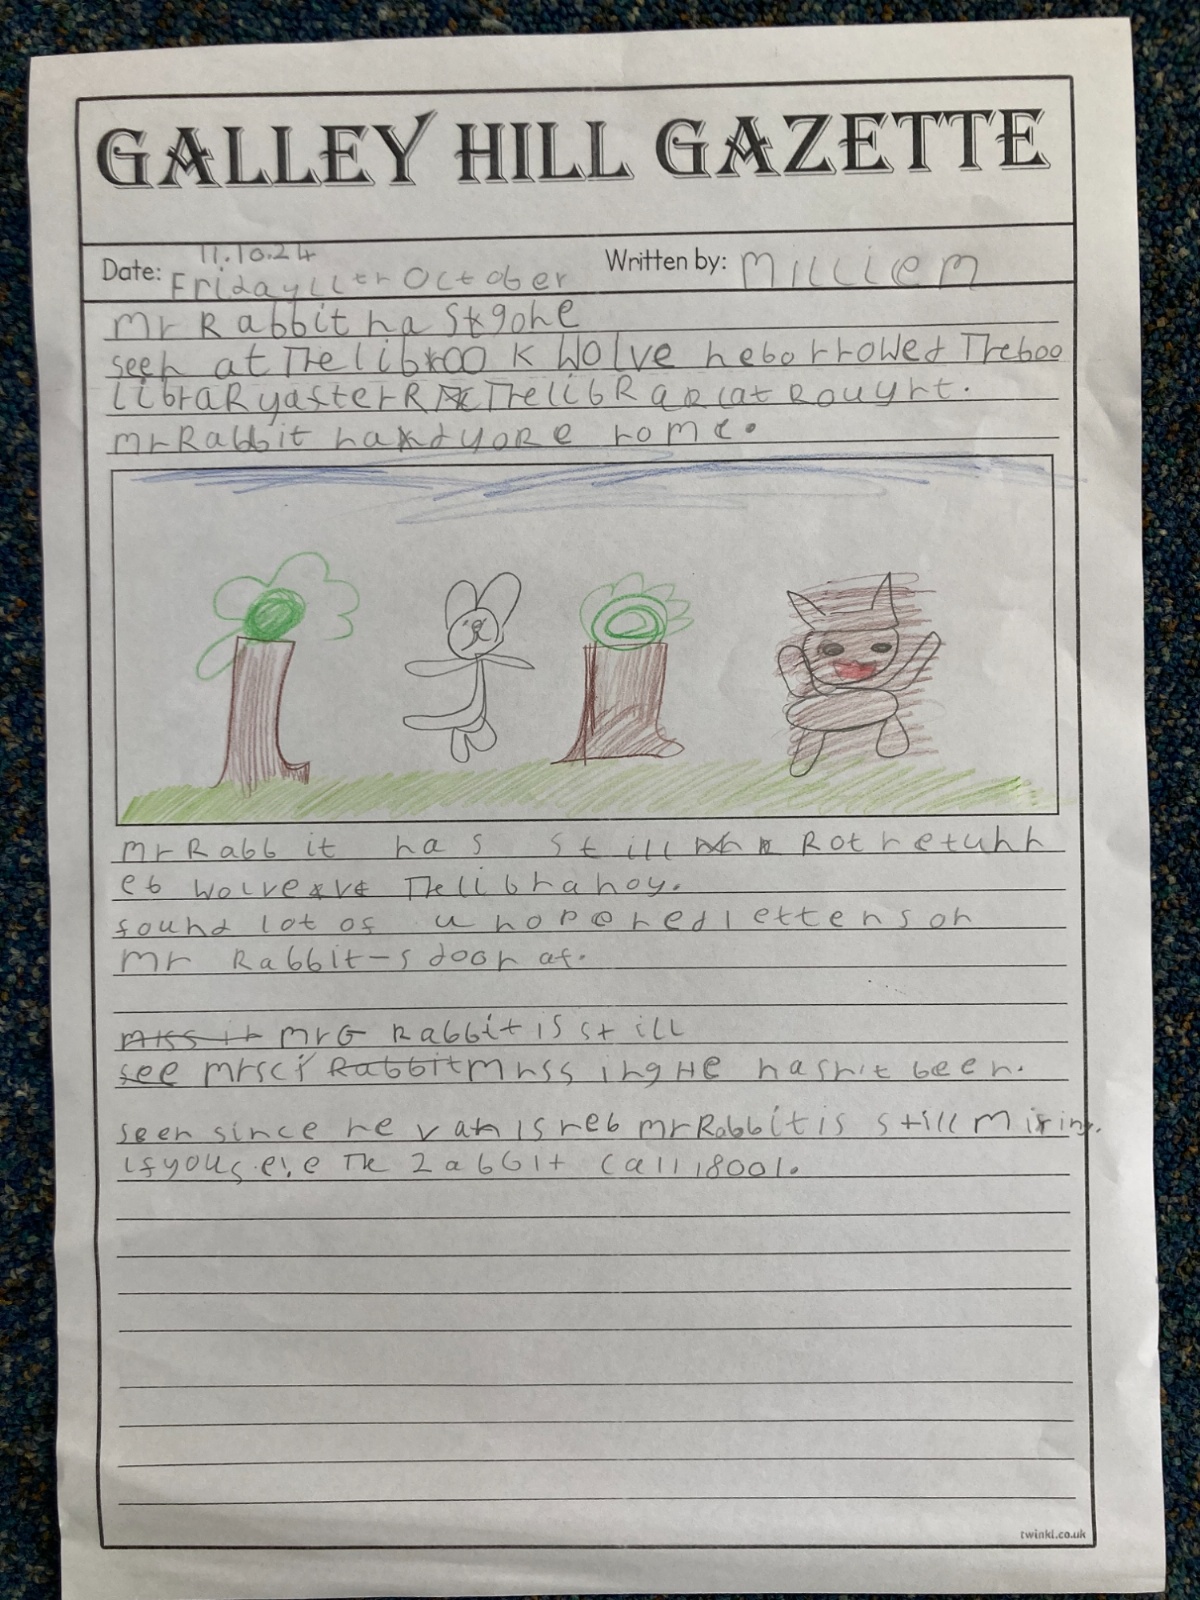 GALLEY HILL GAZETTE
11.10.24
Date: Friday 11th October
Written by: Millie M
Mr Rabbit has gone
seen at The book Wolve he borrowed The boo
library after The
Mr Rabbit had gone home.
Mr Rabbit has still not return
ed Wolve The library.
found lot of unopened letters on
Mr Rabbit-s door at.
Mr G Rabbit is still
see Rabbit missing He hasn't been.
seen since he vanished Mr Rabbit is still mising.
If you see The Rabbit call 18001.
twinkl.co.uk